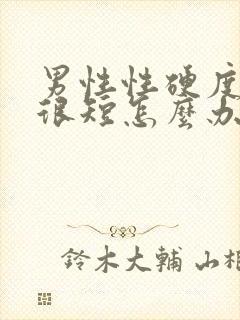 男性性硬度
很短怎麼办
鈴木大輔 山相